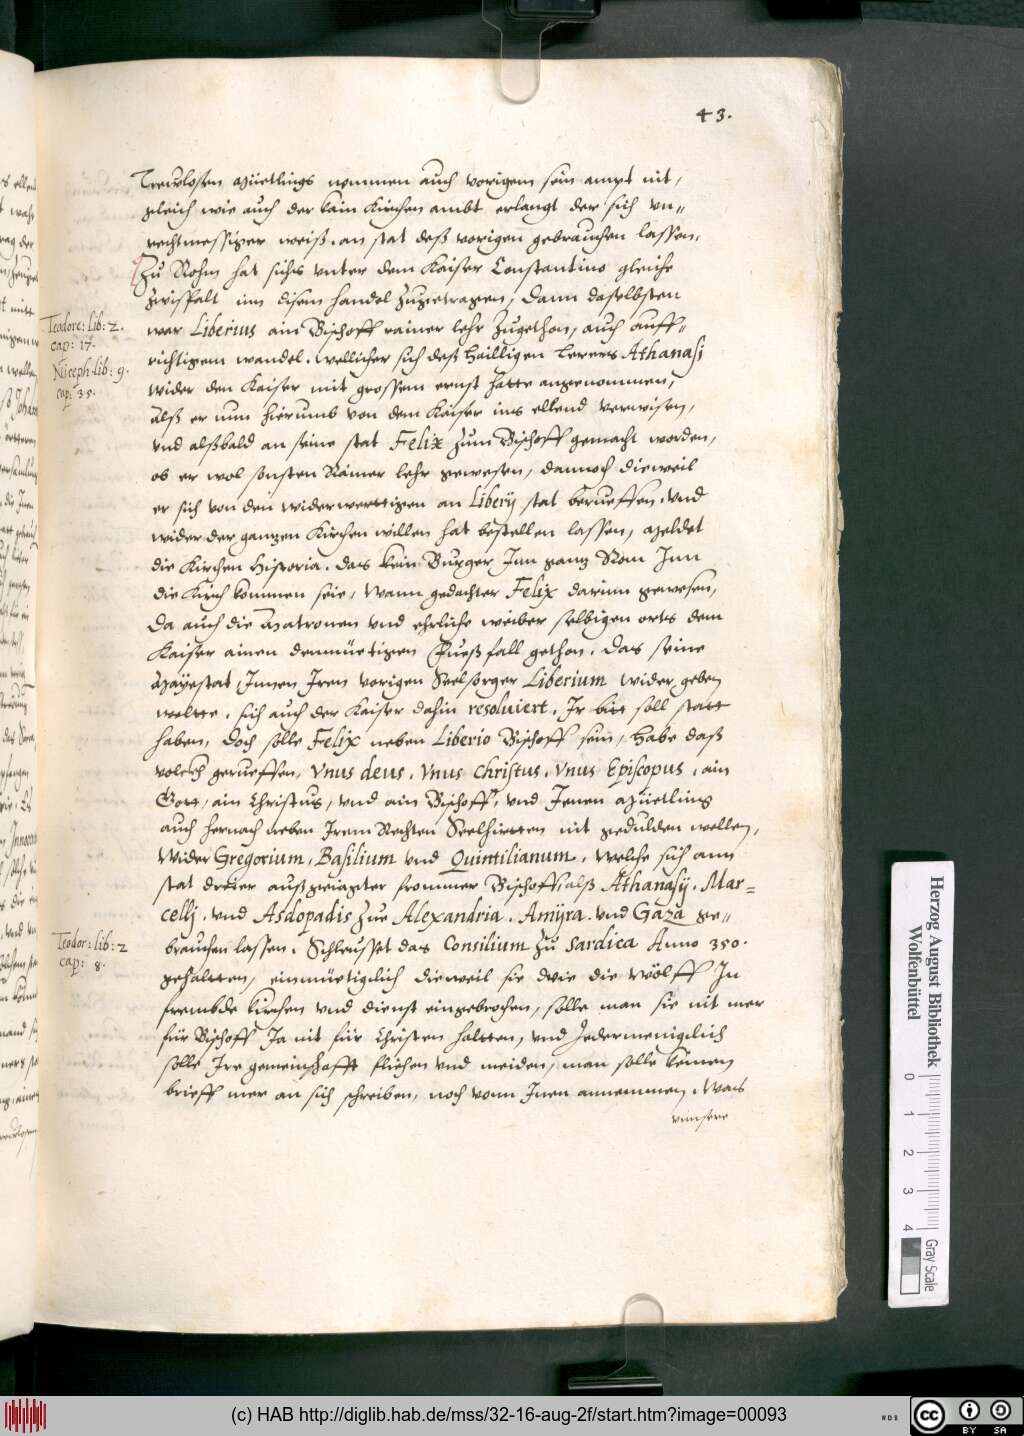 43.
Trewlosen Müetlings nommen auch vorigem sein ampt nit,
gleich wie auch der kain Kirchen ambt erlangt der sich vn„
rechtmessiger weiß, an stat deß vorigen gebrauchen lassen,
Zu Rohm hat sichs vnter dem Kaiser Constantino gleiche
zwispalt inn disem handel zugetragen, Dann daselbsten
war Liberius ain Bischoff rainer lehr zugethon, auch auff„
richtigem wandel, wellicher sich deß heilligen Lerers Athanasj
wider den Kaiser mit grossem ernst hatte angenommen,
alß er nun hierumb von dem Kaiser ins ellend verwisen,
vnd alßbald an seine stat Felix zum Bischoff gemacht worden,
ob er wol sonsten Rainer lehr gewesen, dannoch dieweil
er sich von den widerwerttigen an Liberij stat berueffen, vnd
wider der gantzen Kirchen willen hat bestellen lassen, meldet
die Kirchen Historia, das kein Burger Inn gantz Rom Inn
die Kirch kommen seie, Wann gedachter Felix darinn gewesen,
Da auch die Matronen vnd ehrliche weiber selbigen orts dem
Kaiser ainen demmüetigen Fueß fall gethon, das seine
Mayestat Innen Iren vorigen Seelsorger Liberium wider geben
wollte, sich auch der Kaiser dahin resoluiert, Ir bitt soll statt
haben, doch solle Felix neben Liberio Bischoff sein, habe daß
volckh gerueffen, Vnus deus, Vnus Christus, Vnus Episcopus, ain
Gott, ain Christus, vnd ain Bischoff, vnd Jenen Müetling
auch hernach neben Irem Rechten Seelhirtten nit gedulden wellen,
Wider Gregorium, Basilium vnd Quintilianum, welche sich ann
stat dreier außgeiagter frommer Bischoff, alß Athanasij, Mar=
cellj, vnd Asdopadis zue Alexandria, Amÿra, vnd Gaza ge„
brauchen lassen, Schleusset das Consilium zu Sardica Anno 350.
gehaltten, einmüetigclich dieweil sie wie die Wölff In
frembde kirchen vnd dienst eingebrochen, solle man sie nit mer
für Bischoff Ja nit für Christen haltten, vnd Jedermenigclich
solle Ire gemeinschafft fliehen vnd meiden, man solle keinen
brieff mer an sich schreiben, noch vonn Inen annemmen, Was
vnnsere
Teodore: lib: 2.
cap: 17.
Niceph. lib: 9.
cap: 35.
Teodor: lib: 2
cap: 8.
Herzog August Bibliothek
Wolfenbüttel
0 1 2 3 4
Gray Scale
(c) HAB http://diglib.hab.de/mss/32-16-aug-2f/start.htm?image=00093
WDB
cc BY SA